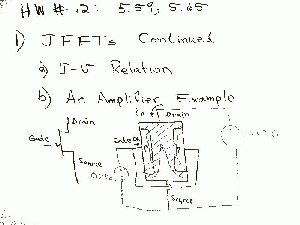 HW #12: 5.59, 5.65
1) JFETs Continued
a) I-V Relation
b) An Amplifier Example
Drain
Drain
Gate
Gate
Source
Source